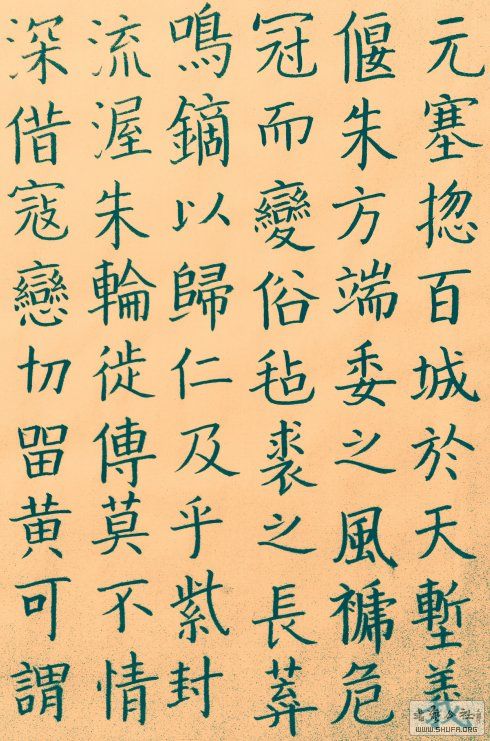 元塞揔百城於天塹
偃朱方端委之風褫危
冠而變俗毡裘之長
鳴鏑以歸仁及乎紫封
流渥朱輪徙傳莫不情
深借寇戀切留黄可謂
WWW.SHUFA.ORG